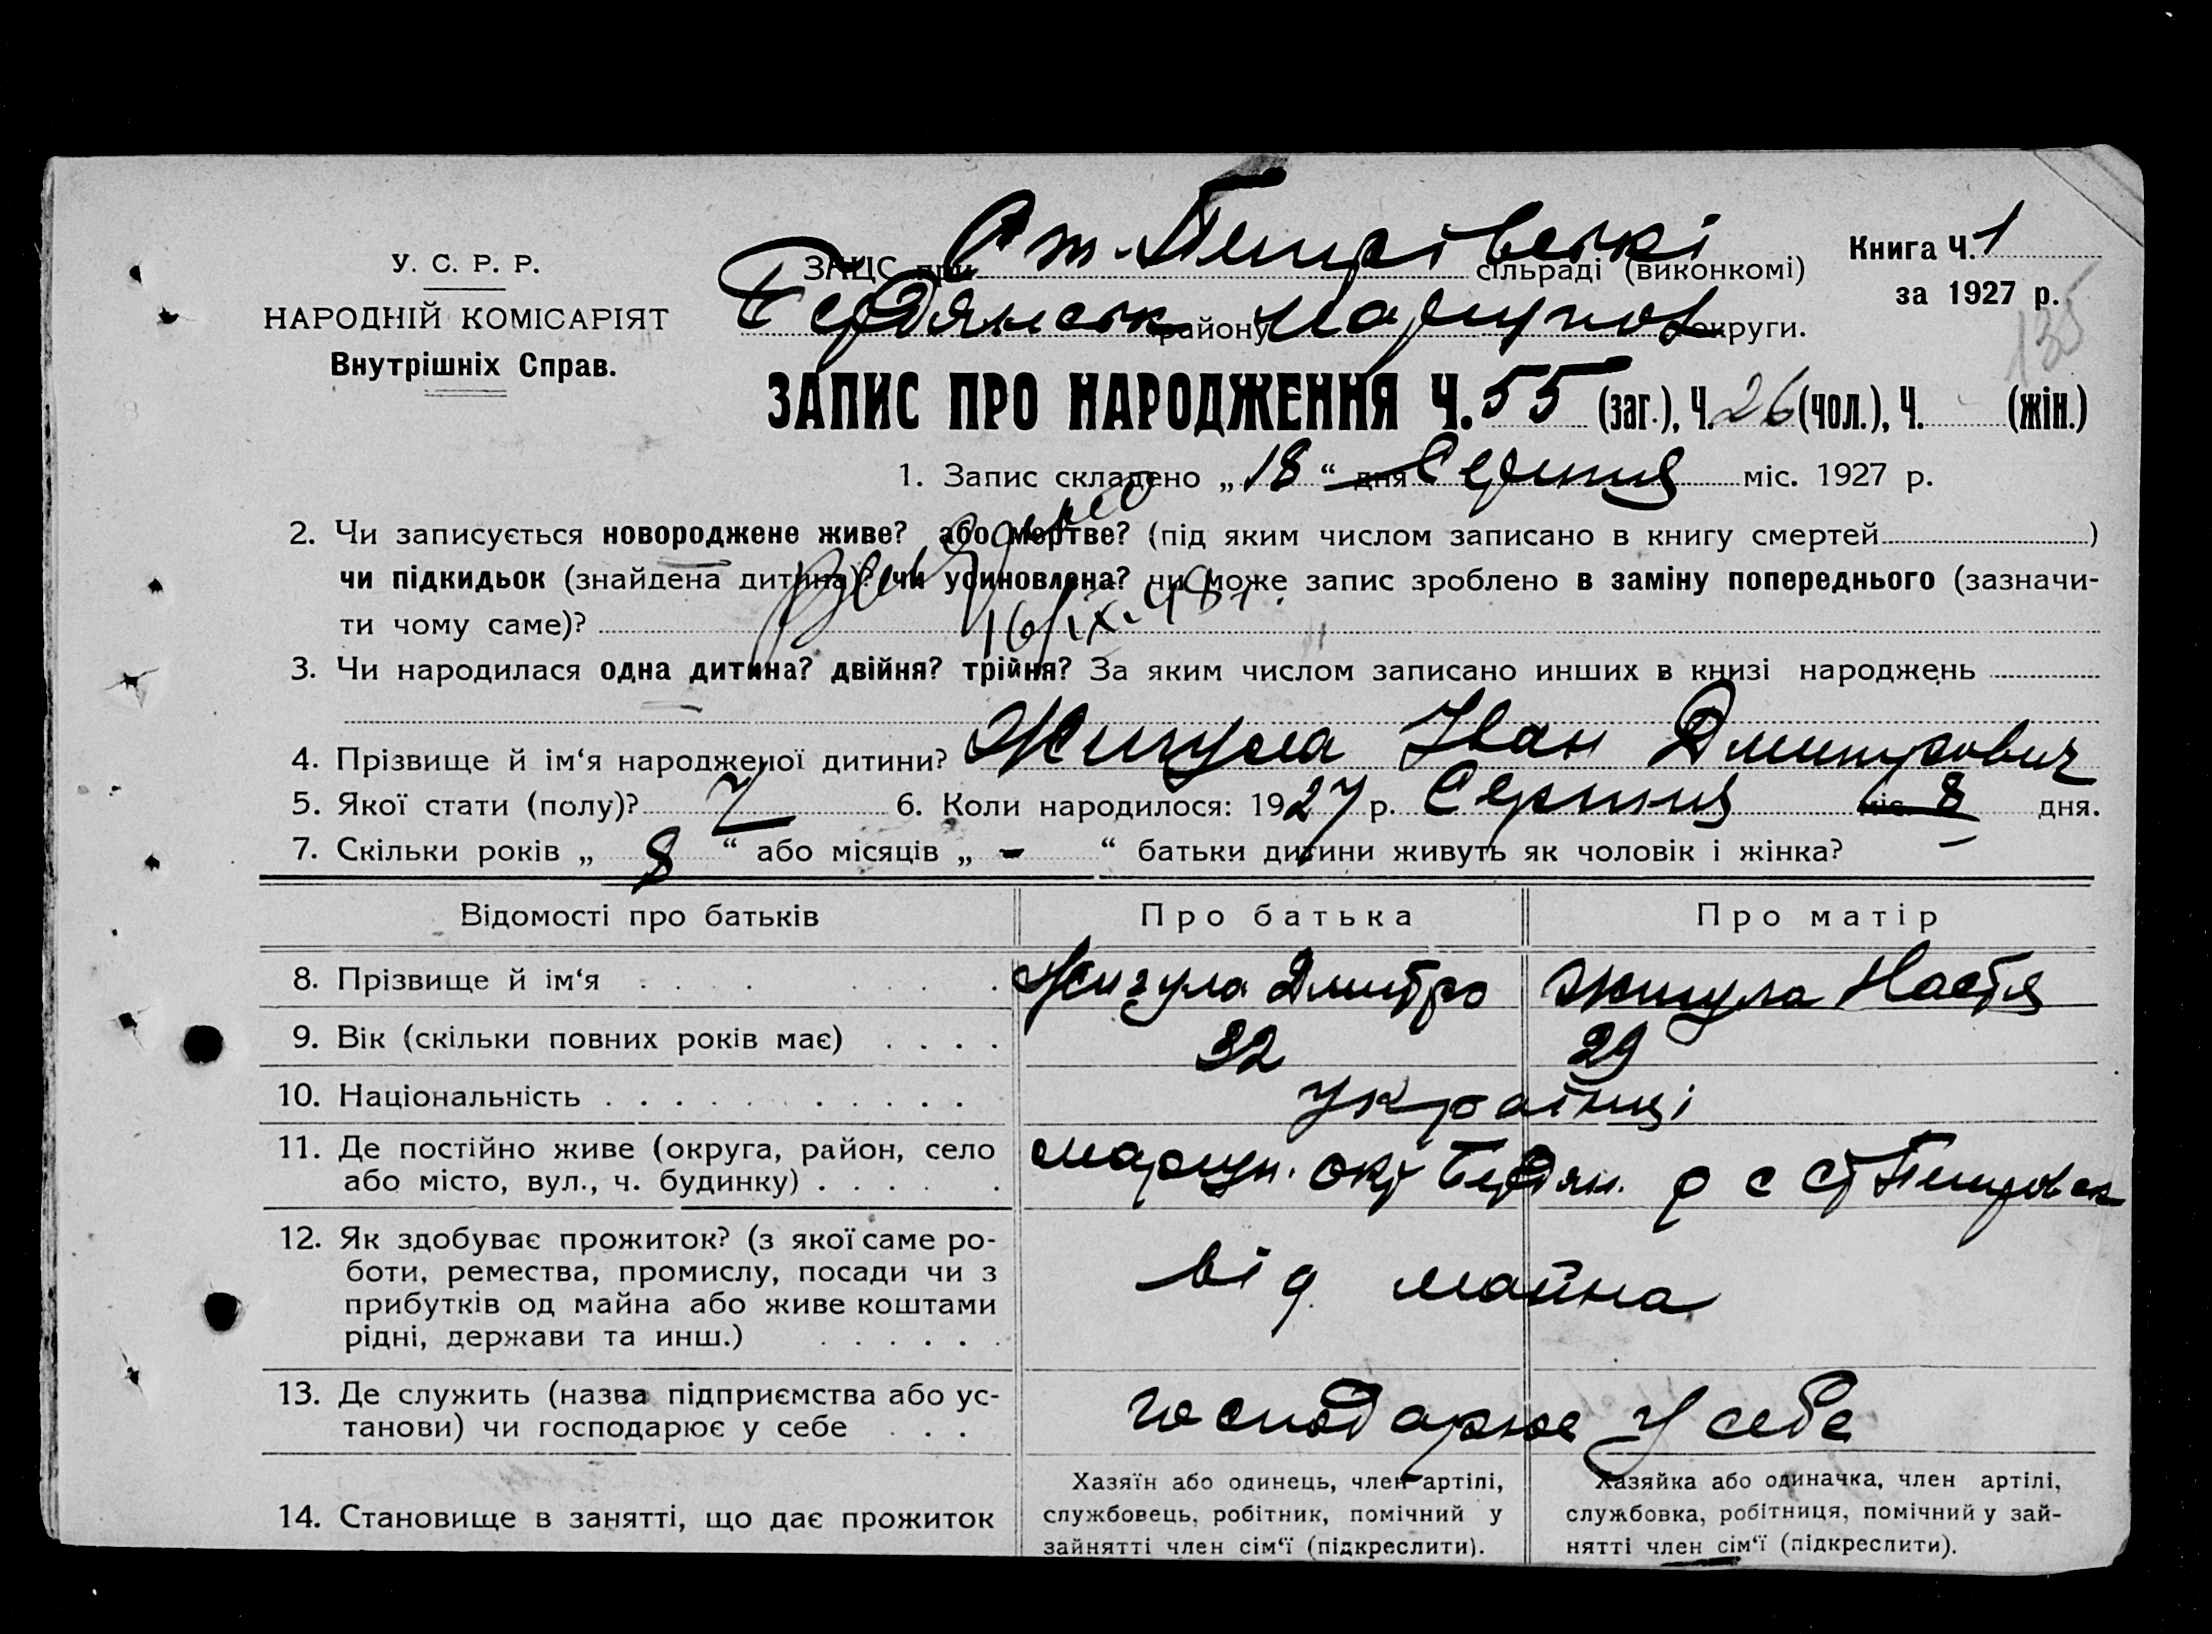 У. С. Р. Р.
НАРОДНІЙ КОМІСАРІЯТ
Внутрішніх Справ.
ЗАЦС при Ст. Петрівські сільраді (виконкомі)
Бердянськ району Маріупол округи.
Книга Ч. 1
за 1927 р.
135
ЗАПИС ПРО НАРОДЖЕННЯ Ч. 55 (заг.), Ч. 26 (чол.), Ч. (жін.)
1. Запис складено „ 18 “ дня Серпня міс. 1927 р.
2. Чи записується новороджене живе? або мертве? (під яким числом записано в книгу смертей )
чи підкидьок (знайдена дитина)? чи усиновлена? чи може запис зроблено в заміну попереднього (зазначи-
ти чому саме)?
16/IX-48
3. Чи народилася одна дитина? двійня? трійня? За яким числом записано инших в книзі народжень
4. Прізвище й ім‘я народженої дитини? Жигула Іван Дмитрович
5. Якої стати (полу)? Ч 6. Коли народилося: 1927 р. Серпня міс. 8 дня.
7. Скільки років „ 8 “ або місяців „ - “ батьки дитини живуть як чоловік і жінка?
Відомості про батьків Про батька Про матір
8. Прізвище й ім‘я . . . . Жигула Дмитро Жигула Настя
9. Вік (скільки повних років має) . . . . 32 29
10. Національність . . . . українці
11. Де постійно живе (округа, район, село
або місто, вул., ч. будинку) . . . . Маріуп. окр Бердян. р с Ст Петровськ
12. Як здобуває прожиток? (з якої саме ро-
боти, ремества, промислу, посади чи з
прибутків од майна або живе коштами
рідні, держави та инш.) . . . . від майна
13. Де служить (назва підприємства або ус-
танови) чи господарює у себе . . . господарює у себе
14. Становище в занятті, що дає прожиток
Хазяїн або одинець, член артілі,
службовець, робітник, помічний у
зайнятті член сім‘ї (підкреслити).
Хазяйка або одиначка, член артілі,
службовка, робітниця, помічний у зай-
нятті член сім‘ї (підкреслити).